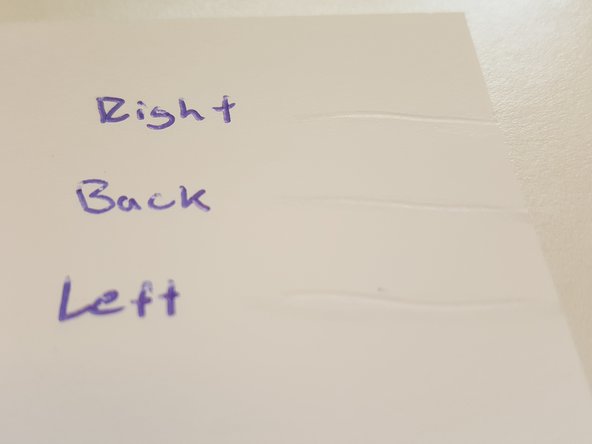 Right
Back
Left